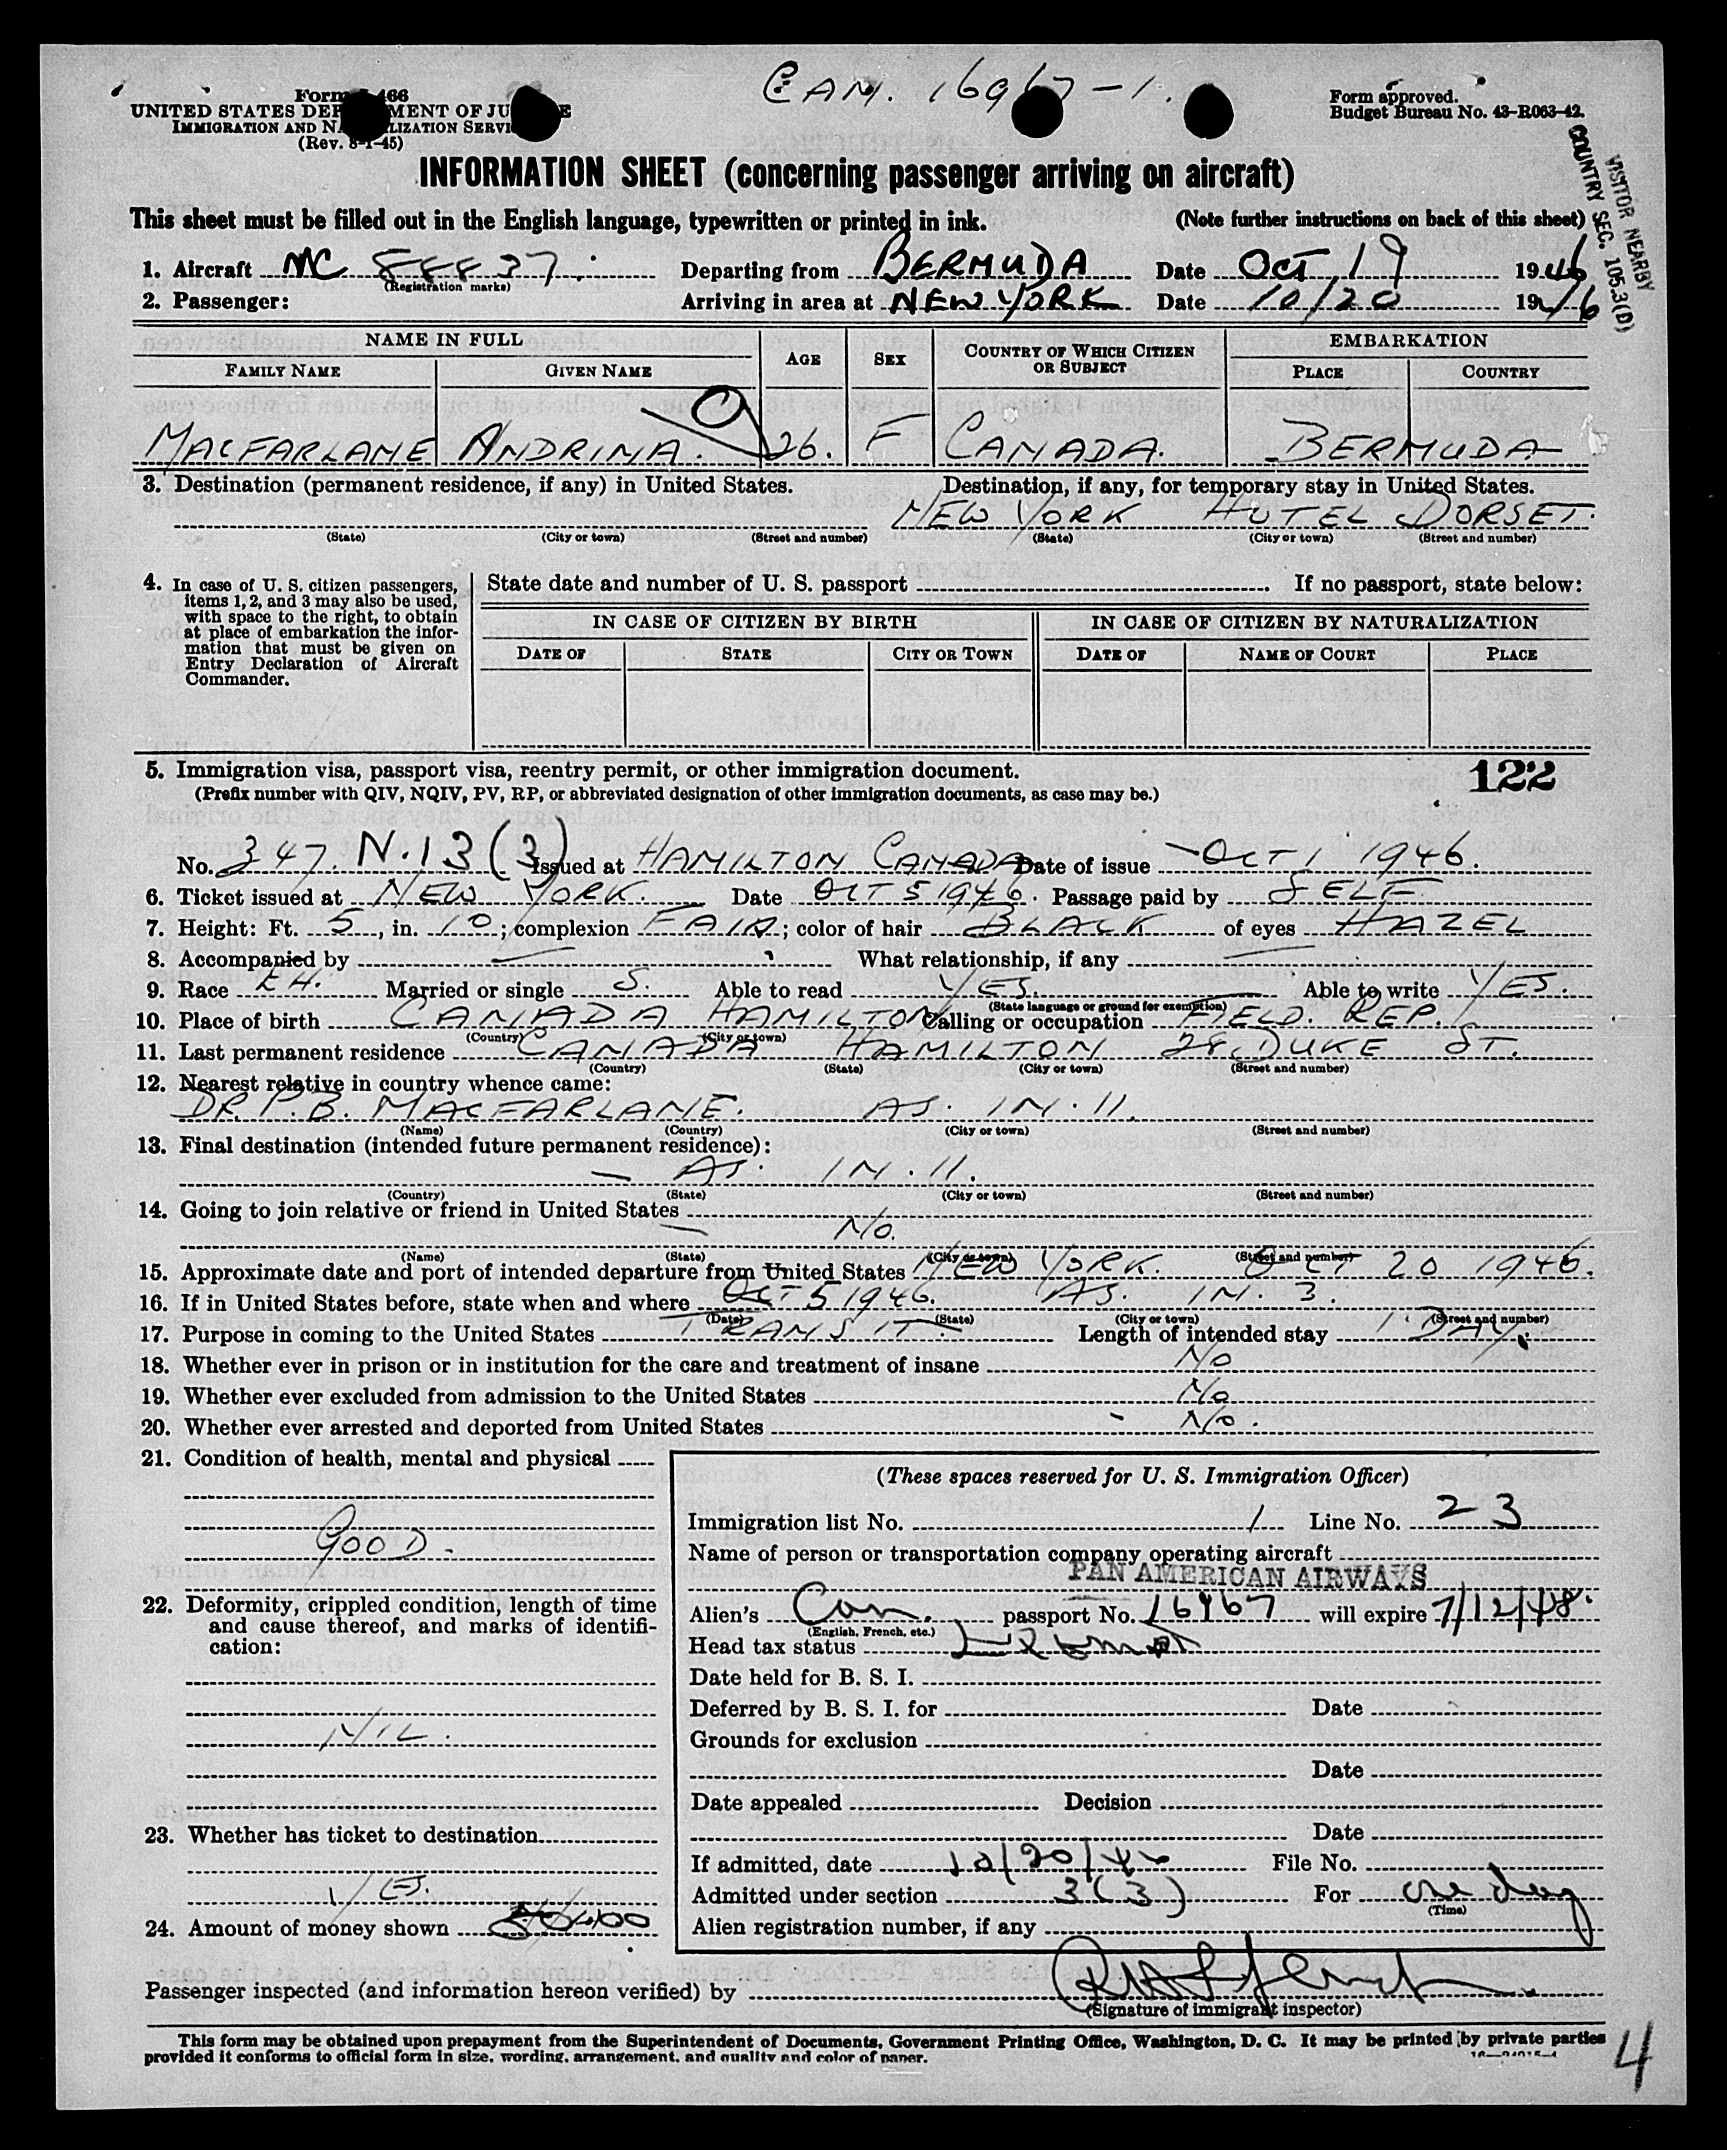 CAN. 16967-1.
Form I-466
UNITED STATES DEPARTMENT OF JUSTICE
IMMIGRATION AND NATURALIZATION SERVICE
(Rev. 8-1-45)
Form approved.
Budget Bureau No. 43-R063-42.
VISITOR NEARBY
COUNTRY SEC. 105.3(D)
INFORMATION SHEET (concerning passenger arriving on aircraft)
This sheet must be filled out in the English language, typewritten or printed in ink. (Note further instructions on back of this sheet)
1. Aircraft NC 88837. Departing from BERMUDA Date OCT 19 1946
(Registration marks)
2. Passenger: Arriving in area at NEW YORK Date 10/20 1946
NAME IN FULL AGE SEX COUNTRY OF WHICH CITIZEN OR SUBJECT EMBARKATION
FAMILY NAME GIVEN NAME PLACE COUNTRY
MACFARLANE ANDRINA. 26. F CANADA. BERMUDA
3. Destination (permanent residence, if any) in United States. Destination, if any, for temporary stay in United States.
NEW YORK HOTEL DORSET.
(State) (City or town) (Street and number) (State) (City or town) (Street and number)
4. In case of U. S. citizen passengers, items 1, 2, and 3 may also be used, with space to the right, to obtain at place of embarkation the information that must be given on Entry Declaration of Aircraft Commander.
State date and number of U. S. passport If no passport, state below:
IN CASE OF CITIZEN BY BIRTH IN CASE OF CITIZEN BY NATURALIZATION
DATE OF STATE CITY OR TOWN DATE OF NAME OF COURT PLACE
5. Immigration visa, passport visa, reentry permit, or other immigration document. 122
(Prefix number with QIV, NQIV, PV, RP, or abbreviated designation of other immigration documents, as case may be.)
No. 347. N.13 (3) Issued at HAMILTON CANADA Date of issue OCT 1 1946.
6. Ticket issued at NEW YORK. Date OCT 5 1946. Passage paid by SELF.
7. Height: Ft. 5, in. 10; complexion FAIR; color of hair BLACK of eyes HAZEL
8. Accompanied by — What relationship, if any —
9. Race Married or single S. Able to read YES. Able to write YES.
(State language or ground for exemption)
10. Place of birth CANADA HAMILTON Calling or occupation FIELD. REP.
(Country) (City or town)
11. Last permanent residence CANADA HAMILTON 28 DUKE ST.
(Country) (State) (City or town) (Street and number)
12. Nearest relative in country whence came:
DR. P.B. MACFARLANE. AS. IN. 11.
(Name) (Country) (City or town) (Street and number)
13. Final destination (intended future permanent residence):
— AS. IN. 11.
(Country) (State) (City or town) (Street and number)
14. Going to join relative or friend in United States
— NO.
(Name) (State) (City or town) (Street and number)
15. Approximate date and port of intended departure from United States NEW YORK. OCT 20 1946.
16. If in United States before, state when and where OCT 5 1946. AS. IN. 3.
(Date) (State) (City or town) (Street and number)
17. Purpose in coming to the United States TRANSIT. Length of intended stay 1 DAY.
18. Whether ever in prison or in institution for the care and treatment of insane NO
19. Whether ever excluded from admission to the United States NO
20. Whether ever arrested and deported from United States - NO.
21. Condition of health, mental and physical
GOOD.
22. Deformity, crippled condition, length of time and cause thereof, and marks of identification:
NIL.
23. Whether has ticket to destination
YES.
24. Amount of money shown
(These spaces reserved for U. S. Immigration Officer)
Immigration list No. 1 Line No. 23
Name of person or transportation company operating aircraft
PAN AMERICAN AIRWAYS
Alien's Can. passport No. 16967 will expire 7/12/48.
(English, French, etc.)
Head tax status
Date held for B. S. I.
Deferred by B. S. I. for Date
Grounds for exclusion
Date
Date appealed Decision
Date
If admitted, date 10/20/46 File No.
Admitted under section 3(3) For one day
(Time)
Alien registration number, if any
Passenger inspected (and information hereon verified) by
(Signature of immigrant inspector)
This form may be obtained upon prepayment from the Superintendent of Documents, Government Printing Office, Washington, D. C. It may be printed by private parties
provided it conforms to official form in size, wording, arrangement, and quality and color of paper.
4